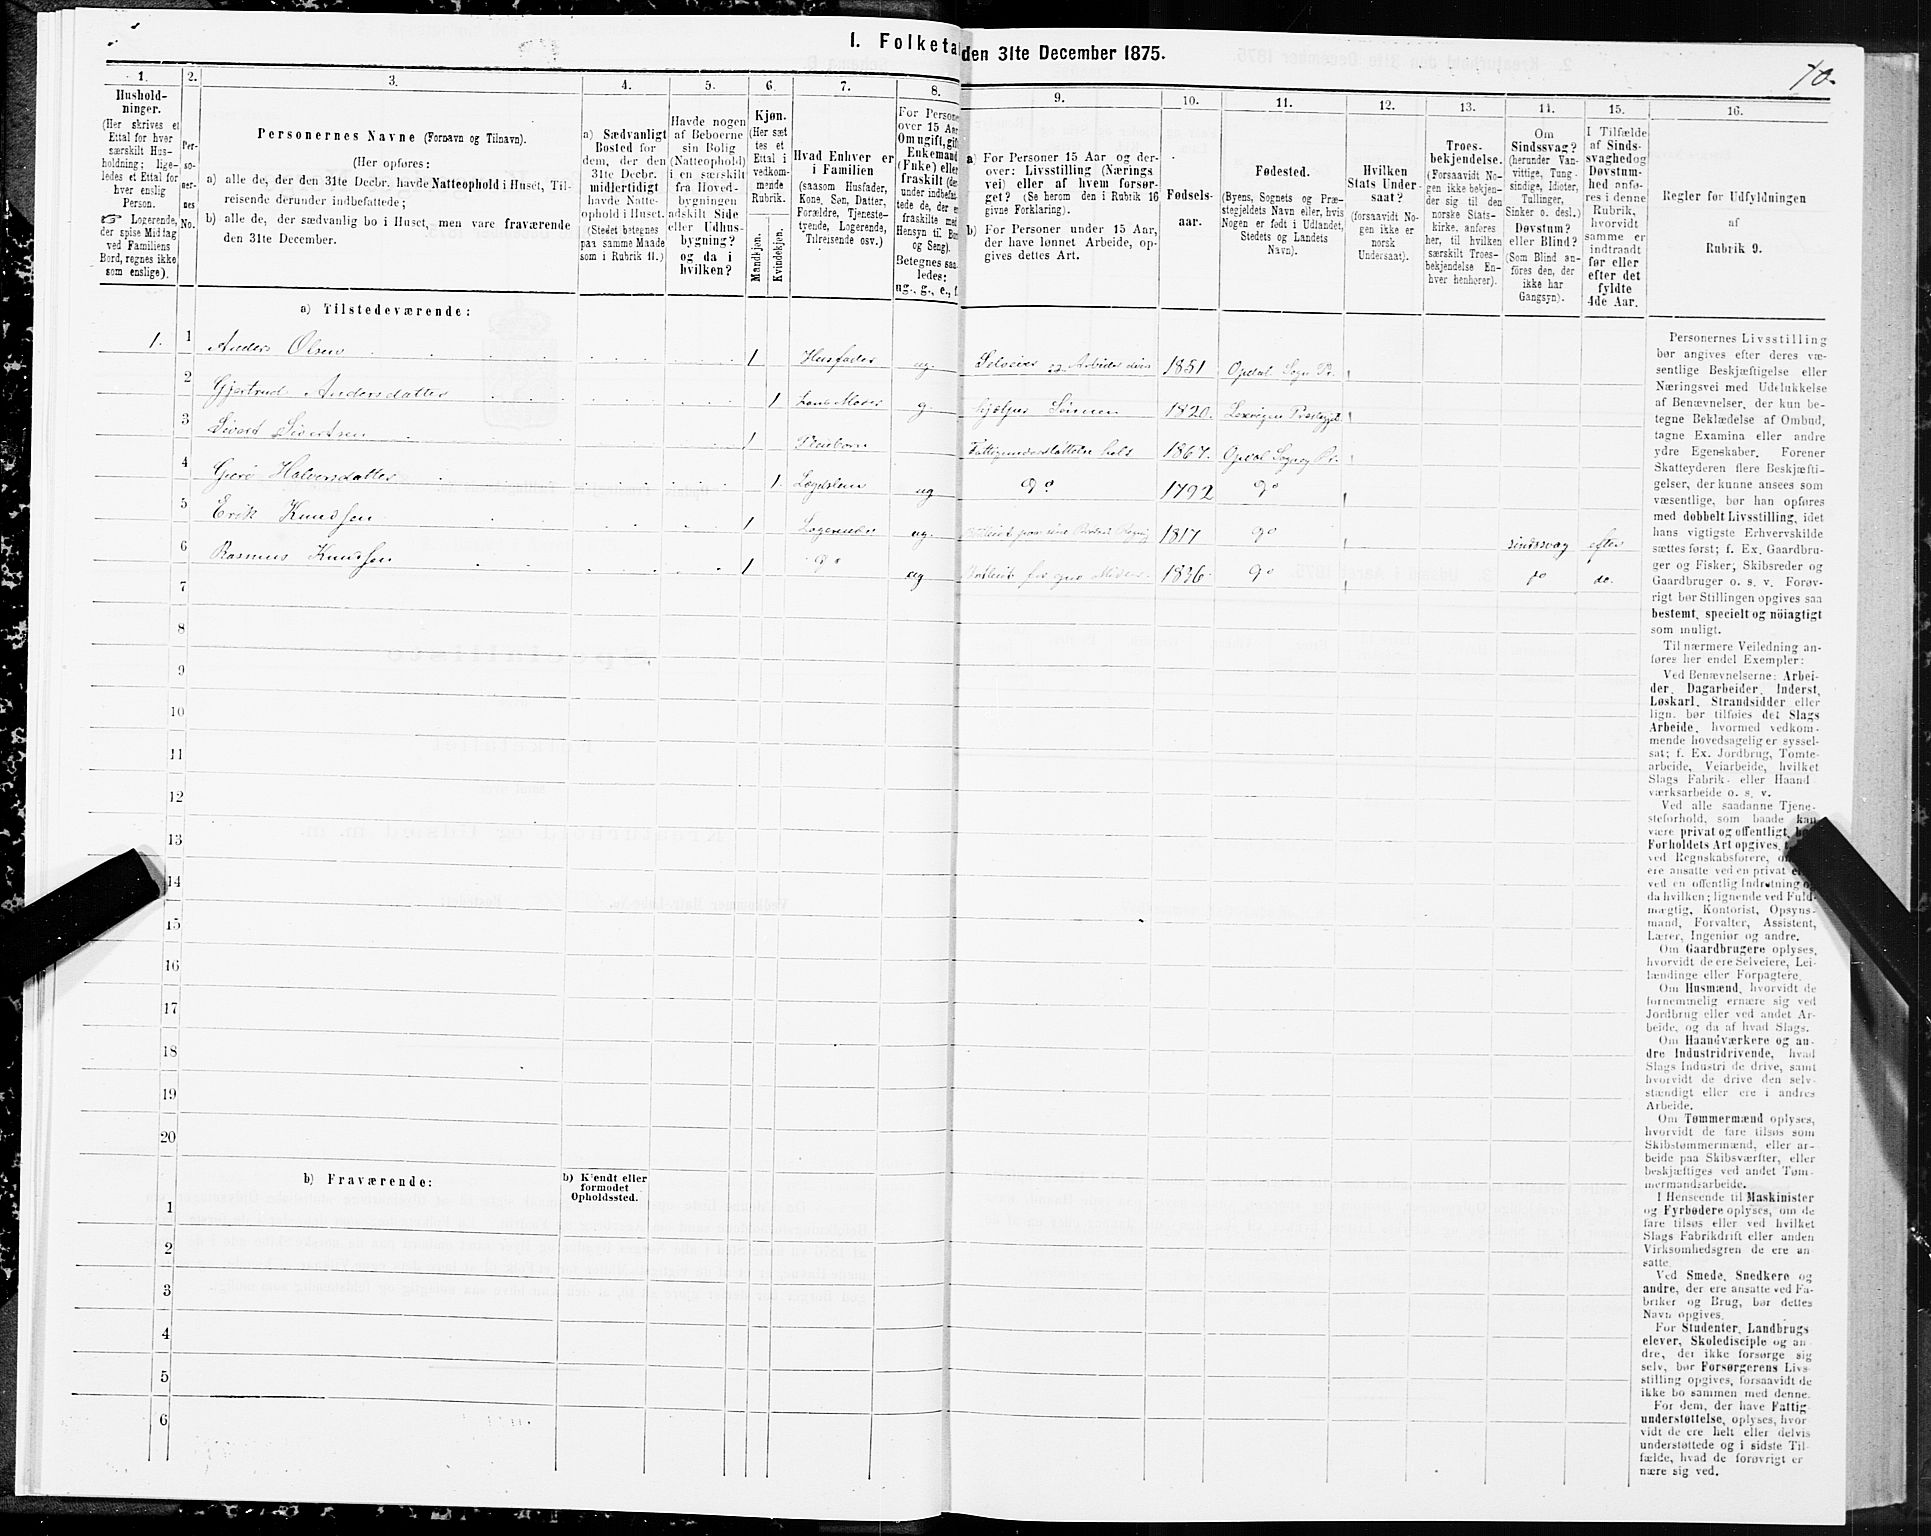 1. Folketal den 31te December 1875.
70.
1.
2.
3.
4.
5.
6.
7.
8.
9.
10.
11.
12.
13.
14.
15.
16.
Hushold-
ninger.
(Her skrives et
Ettal for hver
særskilt Hus-
holdning; lige-
ledes et Ettal for
hver enslig
Person.
☞ Logerende,
der spise Middag
ved Familiens
Bord, regnes ikke
som enslige).
Per-
so-
ner-
nes
No.
Personernes Navne (Fornavn og Tilnavn).
(Her opføres:
a) alle de, der den 31te Decbr. havde Natteophold i Huset, Til-
reisende derunder indbefattede;
b) alle de, der sædvanlig bo i Huset, men vare fraværende
den 31te December.
a) Sædvanligt
Bosted for
dem, der den
31te Decbr.
midlertidigt
havde Natte-
ophold i Huset.
(Stedet betegnes
paa samme Maade
som i Rubrik 11.)
Havde nogen
af Beboerne
sin Bolig
(Natteophold)
i en særskilt
fra Hoved-
bygningen
adskilt Side
eller Udhus-
bygning?
og da i
hvilken?
Kjøn.
(Her sæt
tes et
Ettal i
vedkom-
mende
Rubrik.
Mandkjøn.
Kvindekjøn.
Hvad Enhver er
i Familien
(saasom Husfader,
Kone, Søn, Datter,
Forældre, Tjeneste-
tyende, Logerende,
Tilreisende osv.)
For Persone
over 15 Aar
Om ugift, gift
Enkemand
(Enke) eller
fraskilt (der
under indbefat-
tede de, der e
fraskilte med
Hensyn til Bo
og Seng).
Betegnes saa
ledes:
ug., g., e., f.
a) For Personer 15 Aar og der-
over: Livsstilling (Nærings
vei) eller af hvem forsør-
get? (Se herom den i Rubrik 16
givne Forklaring).
b) For Personer under 15 Aar,
der have lønnet Arbeide, op-
gives dettes Art.
Fødsels-
aar.
Fødested.
(Byens, Sognets og Præ-
stegjeldets Navn eller, hvis
Nogen er født i Udlandet,
Stedets og Landets
Navn).
Hvilken
Stats Under-
saat?
(forsaavidt No-
gen ikke er
norsk
Undersaat).
Troes-
bekjendelse.
(Forsaavidt No-
gen ikke bekjen-
der sig til den
norske Stats-
kirke, anføres
her, til hvilken
særskilt Troes-
bekjendelse En-
hver henhører).
Om
Sindssvag?
(herunder Van-
vittige, Tung-
sindige, Idioter,
Tullinger,
Sinker o. desl.)
Døvstum?
eller Blind?
(Som Blind an-
føres den, der
ikke har
Gangsyn).
I Tilfælde
af Sinds-
svaghed og
Døvstum-
hed anfø-
res i denne
Rubrik,
hvorvidt
samme er
indtraadt
før eller
efter det
fyldte
4de Aar.
Regler for Udfyldningen
af
Rubrik 9.
a) Tilstedeværende:
1. 1 Anders Olsen 1 Husfader ug. Selveier og 1851 Opdal Sogn Pr.
2 Gjertrud Andersdatter 1 g. hjælper Sønnen 1820. Præstegjeld
3 Sivert Sivertsen 1 Pleiebarn 1867. Opdal Sogn og Pr.
4 Halvorsdatter 1. ug do 1792 do
5 Erik Knudsen 1 Logerende ug. 1817 do sindssvag efter
6 Rasmus Knudsen 1 do ug 1836. do do do.
7
8
9
10
11
12
13
14
15
16
17
18
19
20
b) Fraværende:
b) Kjendt eller
formodet
Opholdssted.
1
2
3
4
5
6
Personernes Livsstilling
bør angives efter deres væ-
sentlige Beskjæftigelse eller
Næringsvei med Udelukkelse
af Benævnelser, der kun be-
tegne Beklædelse af Ombud,
tagne Examina eller andre
ydre Egenskaber. Forener
Skatteyderen flere Beskjæfti-
gelser, der kunne ansees som
væsentlige, bør han opføres
med dobbelt Livsstilling, idet
hans vigtigste Erhvervskilde
sættes først; f. Ex. Gaardbru-
ger og Fisker; Skibsreder og
Gaardbruger o. s. v. Forøv-
rigt bør Stillingen opgives saa
bestemt, specielt og nöiagtigt
som muligt.
Til nærmere Veiledning an-
føres her endel Exempler:
Ved Benævnelserne: Arbei-
der, Dagarbeider, Inderst,
Løskarl, Strandsidder eller
lign. bør tilføies det Slags
Arbeide, hvormed vedkom-
mende hovedsagelig er syssel-
sat; f. Ex. Jordbrug, Tomte-
arbeide, Veiarbeide, hvilket
Slags Fabrik- eller Haand
værksarbeide o. s. v.
Ved alle saadanne Tjene-
steforhold, som baade kan
være privat og offentligt,
Forholdets Art opgives,
ved Regnskabsførere,
ere ansatte ved en privat
ved en offentlig Indretning
da hvilken; lignende ved Fuld-
mægtig, Kontorist, Opsyns-
mand, Forvalter, Assistent,
Lærer, Ingeniør og andre.
Om Gaardbrugere oplyses,
hvorvidt de ere Selveiere, Lei-
lændinge eller Forpagtere.
Om Husmænd, hvorvidt de
fornemmelig ernære sig ved
Jordbrug eller ved andet Ar-
beide, og da af hvad Slags.
Om Haandværkere og an-
dre Industridrivende, hvad
Slags Industri de drive, samt
hvorvidt de drive den selv-
stændigt eller ere i andres
Arbeide.
Om Tømmermænd oplyses,
hvorvidt de fare tilsøs som
Skibstømmermænd, eller ar-
beide paa Skibsværfter, eller
beskjæftiges ved andet Tøm-
mermandsarbeide.
I Henseende til Maskinister
og Fyrbødere oplyses, om de
fare tilsøs eller ved hvilket
Slags Fabrikdrift eller anden
Virksomhedsgren de ere an-
satte.
Ved Smede, Snedkere og
andre, der ere ansatte ved Fa-
briker og Brug, bør dettes
Navn opgives.
For Studenter, Landbrugs
elever, Skoledisciple og an-
dre, der ikke forsørge sig
selv, bør Forsørgerens Livs-
stilling opgives, forsaavidt de
ikke bo sammen med denne.
For dem, der have Fattig
understøttelse, oplyses, hvor
vidt de ere helt eller delvis
understøttede og i sidste Til-
fælde, hvad de forøvrigt er
nære sig ved.